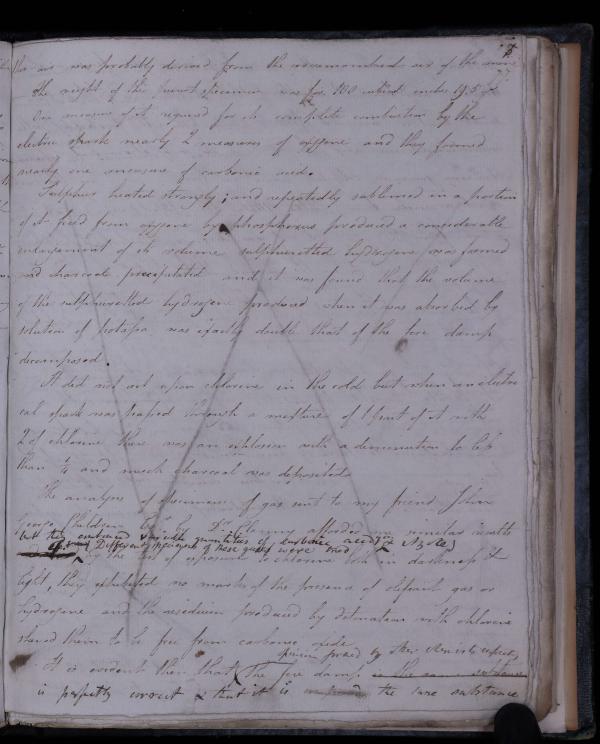 this air was probably derived from the circumambient air of the mine
The weight of the purest specimen was for 100 cubical inches 19.5 gr
One measure of it required for its complete combustion by the
electric spark nearly 2 measures of oxygene and they formed
nearly one measure of carbonic acid.
Sulphur heated strongly; and repeatedly sublimed in a portion
of it freed from oxygene by phosphorus produced a considerable
enlargement of its volume sulphuretted hydrogene was formed
and charcoal precipitated and it was found that the volume
of the sulphuretted hydrogene produced when it was absorbed by
solution of potassa was exactly double that of the fire damp
decomposed.
It did not act upon chlorine in the cold but when an electri
cal spark was passed through a mixture of 1 part of it with
2 of chlorine there was an explosion with a diminution to less
than 1/4 and much charcoal was deposited
The analyses of specimens of gas sent to my friend John
George Children Esqr by Dr Clanny afforded me similar results
but they contained variable quantities of carbonic acid & Azote
Different specimens of these gases were tried
by the test of exposure to chlorine both in darkness &
light, they exhibited no marks of the presence of olefiant gas or
hydrogene and the residuum produced by detonation with chlorine
shewed them to be free from carbonic oxide
opinion formed by other Chemists respecting
It is evident then that the fire damp is the same substance
is perfectly correct & that it is the same substance